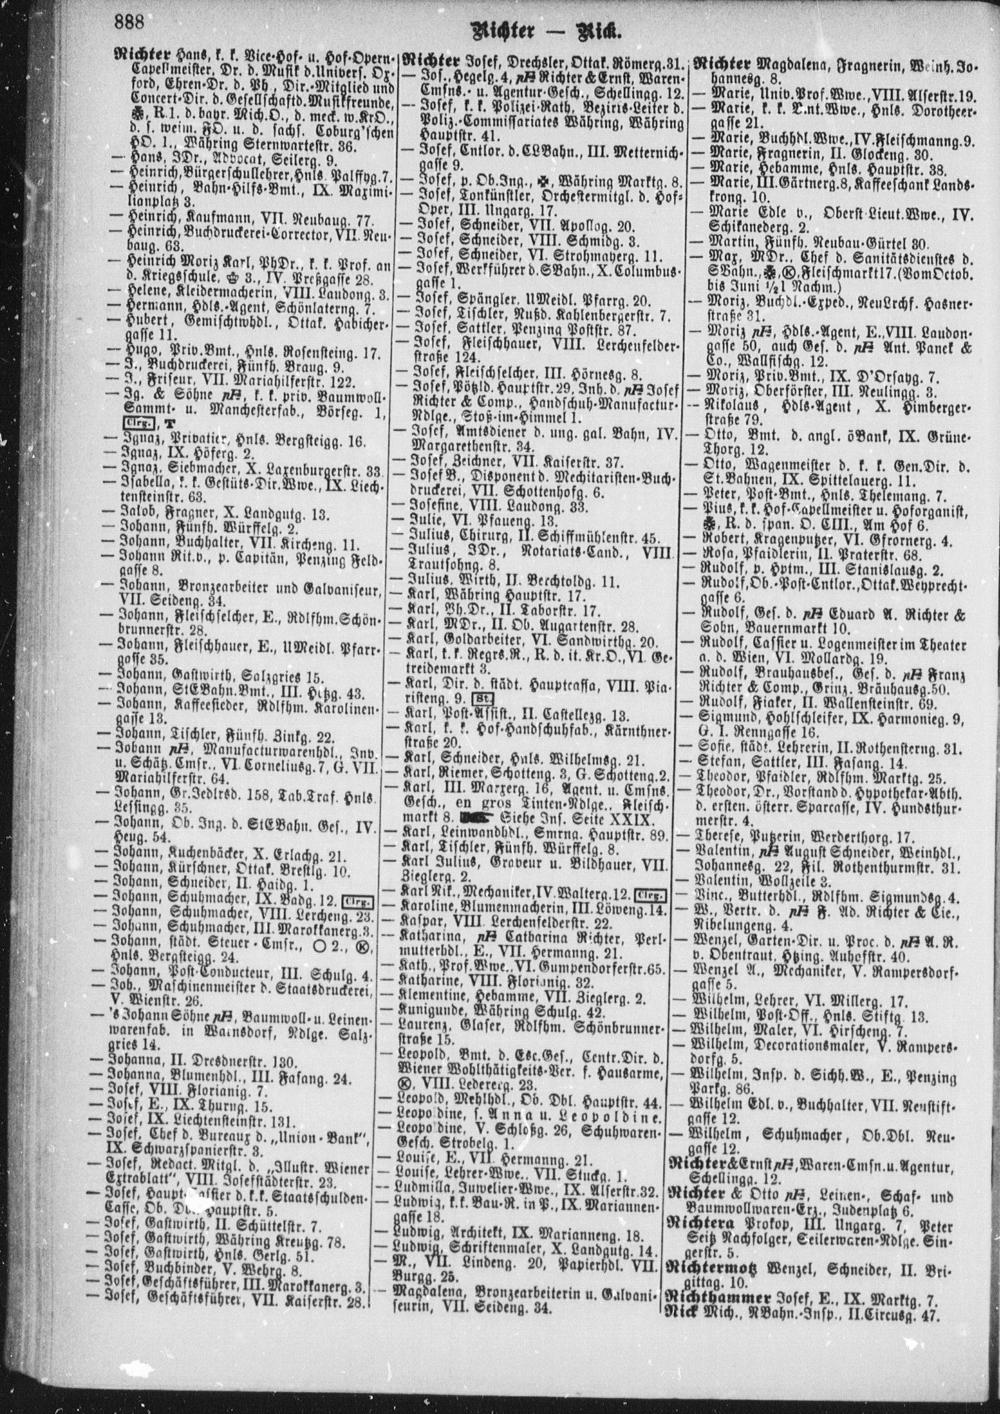 888
Richter — Rick.
Richter Hans, k. k. Vice-Hof- u. Hof-Opern-
Capellmeister, Dr. d. Musik d. Univers. Ox-
ford, Ehren-Dr. d. Ph., Dir.-Mitglied und
Concert-Dir. d. Gesellschaft d. Musikfreunde,
R. 1. d. bayr. Mich. O., d. meck. w. Kr O.,
d. s. weim. F O. u. d. sächs. Coburg'schen
H O. 1., Währing Sternwartestr. 36.
— Hans, JDr., Advocat, Seilerg. 9.
— Heinrich, Bürgerschullehrer, Hnls. Palffyg. 7.
— Heinrich, Bahn-Hilfs-Bmt., IX. Maximi-
lianplatz 3.
— Heinrich, Kaufmann, VII. Neubaug. 77.
— Heinrich, Buchdruckerei-Corrector, VII. Neu-
baug. 63.
— Heinrich Moriz Karl, PhDr., k. k. Prof. an
d. Kriegsschule, 3., IV. Preßgasse 28.
— Helene, Kleidermacherin, VIII. Laudong. 3.
— Hermann, Hdls.-Agent, Schönlaterng. 7.
— Hubert, Gemischtwhdl., Ottak. Habicher-
gasse 11.
— Hugo, Priv. Bmt., Hnls. Rosensteing. 17.
— J., Buchdruckerei, Fünfh. Braug. 9.
— J., Friseur, VII. Mariahilferstr. 122.
— Jg. & Söhne, k. k. priv. Baumwoll-
Sammt- u. Manchesterfab., Börseg. 1,
Clrg., T
— Ignaz, Privatier, Hnls. Bergsteigg. 16.
— Ignaz, IX. Höferg. 2.
— Ignaz, Siebmacher, X. Laxenburgerstr. 33.
— Isabella, k. k. Gestüts-Dir. Wwe., IX. Liech-
tensteinstr. 63.
— Jakob, Fragner, X. Landgutg. 13.
— Johann, Fünfh. Würffelg. 2.
— Johann, Buchhalter, VII. Kircheng. 11.
— Johann Rit. v., p. Capitän, Penzing Feld-
gasse 8.
— Johann, Bronzearbeiter und Galvaniseur,
VII. Seideng. 34.
— Johann, Fleischselcher, E., Rdlfhm. Schön-
brunnerstr. 28.
— Johann, Fleischhauer, E., U Meidl. Pfarr-
gasse 35.
— Johann, Gastwirth, Salzgries 15.
— Johann, StEBahn. Bmt., III. Hetzg. 43.
— Johann, Kaffeesieder, Rdlfhm. Karolinen-
gasse 13.
— Johann, Tischler, Fünfh. Zinkg. 22.
— Johann, Manufacturwarenhdl., Inv.
u. Schätz. Cmsr., VI. Corneliusg. 7, G. VII.
Mariahilferstr. 64.
— Johann, Gr. Jedlrsd. 158, Tab. Traf. Hnls.
Lessingg. 35.
— Johann, Ob. Ing. d. StEBahn. Ges., IV.
Heug. 54.
— Johann, Kuchenbäcker, X. Erlachg. 21.
— Johann, Kürschner, Ottak. Brestlg. 10.
— Johann, Schneider, II. Haidg. 1.
— Johann, Schuhmacher, IX. Badg. 12. Clrg.
— Johann, Schuhmacher, VIII. Lercheng. 23.
— Johann, Schuhmacher, III. Marokkanerg. 3.
— Johann, städt. Steuer-Cmsr., 2.,
Hnls. Bergsteigg. 24.
— Johann, Post-Conducteur, III. Schulg. 4.
— Joh., Maschinenmeister d. Staatsdruckerei,
V. Wienstr. 26.
— 's Johann Söhne, Baumwoll- u. Leinen-
warenfab. in Warnsdorf, Ndlge. Salz-
gries 14.
— Johanna, II. Dresdnerstr. 130.
— Johanna, Blumenhdl., III. Fasang. 24.
— Josef, VIII. Florianig. 7.
— Josef, E., IX. Thurng. 15.
— Josef, IX. Liechtensteinstr. 131.
— Josef, Chef d. Bureaux d. „Union-Bank“,
IX. Schwarzspanierstr. 3.
— Josef, Redact. Mitgl. d. „Illustr. Wiener
Extrablatt“, VIII. Josefstädterstr. 23.
— Josef, Haupt-Cassier d. k. k. Staatsschulden-
Casse, Ob. Dbl. Hauptstr. 5.
— Josef, Gastwirth, II. Schüttelstr. 7.
— Josef, Gastwirth, Währing Kreutzg. 78.
— Josef, Gastwirth, Hnls. Gerlg. 51.
— Josef, Buchbinder, V. Wehrg. 8.
— Josef, Geschäftsführer, III. Marokkanerg. 3.
— Josef, Geschäftsführer, VII. Kaiserstr. 28.
Richter Josef, Drechsler, Ottak. Römerg. 31.
— Jos., Hegelg. 4, Richter & Ernst, Waren-
Cmsns.- u. Agentur-Gesch., Schellingg. 12.
— Josef, k. k. Polizei-Rath, Bezirks-Leiter d.
Poliz.-Commissariates Währing, Währing
Hauptstr. 41.
— Josef, Cntlor. d. CLBahn., III. Metternich-
gasse 9.
— Josef, p. Ob. Ing., Währing Marktg. 8.
— Josef, Tonkünstler, Orchestermitgl. d. Hof-
Oper, III. Ungarg. 17.
— Josef, Schneider, VII. Apollog. 20.
— Josef, Schneider, VIII. Schmidg. 3.
— Josef, Schneider, VI. Strohmayerg. 11.
— Josef, Werkführer d. SBahn., X. Columbus-
gasse 1.
— Josef, Spängler, U Meidl. Pfarrg. 20.
— Josef, Tischler, Nußd. Kahlenbergerstr. 7.
— Josef, Sattler, Penzing Poststr. 87.
— Josef, Fleischhauer, VIII. Lerchenfelder-
straße 124.
— Josef, Fleischselcher, III. Hörnesg. 8.
— Josef, Pötzld. Hauptstr. 29, Inh. d. Josef
Richter & Comp., Handschuh-Manufactur-
Ndlge., Stoß-im-Himmel 1.
— Josef, Amtsdiener d. ung. gal. Bahn, IV.
Margarethenstr. 34.
— Josef, Zeichner, VII. Kaiserstr. 37.
— Josef B., Disponent d. Mechitaristen-Buch-
druckerei, VII. Schottenhofg. 6.
— Josefine, VIII. Laudong. 33.
— Julie, VI. Pfaueng. 13.
— Julius, Chirurg, II. Schiffmühlenstr. 45.
— Julius, JDr., Notariats-Cand., VIII.
Trautsohng. 8.
— Julius, Wirth, II. Bechtoldg. 11.
— Karl, Währing Hauptstr. 17.
— Karl, Ph. Dr., II. Taborstr. 17.
— Karl, MDr., II. Ob. Augartenstr. 28.
— Karl, Goldarbeiter, VI. Sandwirthg. 20.
— Karl, k. k. Regrs. R., R. d. it. Kr. O., VI. Ge-
treidemarkt 3.
— Karl, Dir. d. städt. Hauptcassa, VIII. Pia-
risteng. 9. St.
— Karl, Post-Assist., II. Castellezg. 13.
— Karl, k. k. Hof-Handschuhfab., Kärnthner-
straße 20.
— Karl, Schneider, Hnls. Wilhelmsg. 21.
— Karl, Riemer, Schotteng. 3, G. Schotteng. 2.
— Karl, III. Marxerg. 16, Agent. u. Cmsns.
Gesch., en gros Tinten-Ndlge., Fleisch-
markt 8. Siehe Ins. Seite XXIX.
— Karl, Leinwandhdl., Smrng. Hauptstr. 89.
— Karl, Tischler, Fünfh. Würffelg. 8.
— Karl Julius, Graveur u. Bildhauer, VII.
Zieglerg. 2.
— Karl Nik., Mechaniker, IV. Walterg. 12. Clrg.
— Karoline, Blumenmacherin, III. Löweng. 14.
— Kaspar, VIII. Lerchenfelderstr. 22.
— Katharina, Catharina Richter, Perl-
mutterhdl., E., VII. Hermanng. 21.
— Kath., Prof. Wwe., VI. Gumpendorferstr. 65.
— Katharine, VIII. Florianig. 32.
— Klementine, Hebamme, VII. Zieglerg. 2.
— Kunigunde, Währing Schulg. 42.
— Laurenz, Glaser, Rdlfhm. Schönbrunner-
straße 15.
— Leopold, Bmt. d. Esc. Ges., Centr. Dir. d.
Wiener Wohlthätigkeits-Ver. f. Hausarme,
VIII. Ledererg. 23.
— Leopold, Mehlhdl., Ob. Dbl. Hauptstr. 44.
— Leopoldine, s. Anna u. Leopoldine.
— Leopoldine, V. Schloßg. 26, Schuhwaren-
Gesch. Strobelg. 1.
— Louise, E., VII. Hermanng. 21.
— Louise, Lehrer-Wwe., VII. Stuckg. 1.
— Ludmilla, Juwelier-Wwe., IX. Alserstr. 32.
— Ludwig, k. k. Bau-R. in P., IX. Mariannen-
gasse 18.
— Ludwig, Architekt, IX. Marianneng. 18.
— Ludwig, Schriftenmaler, X. Landgutg. 14.
— M., VII. Lindeng. 20, Papierhdl. VII.
Burgg. 25.
— Magdalena, Bronzearbeiterin u. Galvani-
seurin, VII. Seideng. 34.
Richter Magdalena, Fragnerin, Weinh. Jo-
hannesg. 8.
— Marie, Univ. Prof. Wwe., VIII. Alserstr. 19.
— Marie, k. k. Lnt. Wwe., Hnls. Dorotheer-
gasse 21.
— Marie, Buchhdl. Wwe., IV. Fleischmanng. 9.
— Marie, Fragnerin, II. Glockeng. 30.
— Marie, Hebamme, Hnls. Hauptstr. 38.
— Marie, III. Gärtnerg. 8, Kaffeeschank Lands-
krong. 10.
— Marie Edle v., Oberst-Lieut. Wwe., IV.
Schikanederg. 2.
— Martin, Fünfh. Neubau-Gürtel 30.
— Max, MDr., Chef d. Sanitätsdienstes d.
SBahn., Fleischmarkt 17. (Vom Octob.
bis Juni ½1 Nachm.)
— Moriz, Buchdl.-Exped., Neu Lrchf. Hasner-
straße 31.
— Moriz, Hdls.-Agent, E., VIII. Laudon-
gasse 50, auch Ges. d. Ant. Panek &
Co., Wallfischg. 12.
— Moriz, Priv. Bmt., IX. D'Orsayg. 7.
— Moriz, Oberförster, III. Neulingg. 3.
— Nikolaus, Hdls-Agent, X. Himberger-
straße 79.
— Otto, Bmt. d. angl. öBank, IX. Grüne-
Thorg. 12.
— Otto, Wagenmeister d. k. k. Gen. Dir. d.
St. Bahnen, IX. Spittelauerg. 11.
— Peter, Post-Bmt., Hnls. Thelemang. 7.
— Pius, k. k. Hof-Capellmeister u. Hoforganist,
R. d. span. O. CIII., Am Hof 6.
— Robert, Kragenputzer, VI. Gfrornerg. 4.
— Rosa, Pfaidlerin, II. Praterstr. 68.
— Rudolf, p. Hptm., III. Stanislausg. 2.
— Rudolf, Ob.-Post-Cntlor., Ottak. Weyprecht-
gasse 6.
— Rudolf, Ges. d. Eduard A. Richter &
Sohn, Bauernmarkt 10.
— Rudolf, Cassier u. Logenmeister im Theater
a. d. Wien, VI. Mollardg. 19.
— Rudolf, Brauhausbes., Ges. d. Franz
Richter & Comp., Grinz. Bräuhausg. 50.
— Rudolf, Fiaker, II. Wallensteinstr. 69.
— Sigmund, Hohlschleifer, IX. Harmonieg. 9,
G. I. Renngasse 16.
— Sofie, städt. Lehrerin, II. Rothensterng. 31.
— Stefan, Sattler, III. Fasang. 14.
— Theodor, Pfaidler, Rdlfhm. Marktg. 25.
— Theodor, Dr., Vorstand d. Hypothekar-Abth.
d. ersten. österr. Sparcasse, IV. Hundsthur-
merstr. 4.
— Therese, Putzerin, Werderthorg. 17.
— Valentin, August Schneider, Weinhdl.,
Johannesg. 22, Fil. Rothenthurmstr. 31.
— Valentin, Wollzeile 3.
— Vinc., Butterhdl., Rdlfhm. Sigmundsg. 4.
— W., Vertr. d. F. Ad. Richter & Cie.,
Nibelungeng. 4.
— Wenzel, Garten-Dir. u. Proc. d. A. R.
v. Obentraut, Htzing. Auhofstr. 40.
— Wenzel A., Mechaniker, V. Rampersdorf-
gasse 5.
— Wilhelm, Lehrer, VI. Millerg. 17.
— Wilhelm, Post-Off., Hnls. Stiftg. 13.
— Wilhelm, Maler, VI. Hirscheng. 7.
— Wilhelm, Decorationsmaler, V. Rampers-
dorfg. 5.
— Wilhelm, Insp. d. Sichh. W., E., Penzing
Parkg. 86.
— Wilhelm Edl. v., Buchhalter, VII. Neustift-
gasse 12.
— Wilhelm, Schuhmacher, Ob. Dbl. Neu-
gasse 12.
Richter & Ernst, Waren-Cmsn. u. Agentur,
Schellingg. 12.
Richter & Otto, Leinen-, Schaf- und
Baumwollwaren-Erz., Judenplatz 6.
Richtera Prokop, III. Ungarg. 7, Peter
Seitz Nachfolger, Seilerwaren-Ndlge. Sin-
gerstr. 5.
Richtermotz Wenzel, Schneider, II. Bri-
gittag. 10.
Richthammer Josef, E., IX. Marktg. 7.
Rick Mich., NBahn.-Insp., II. Circusg. 47.